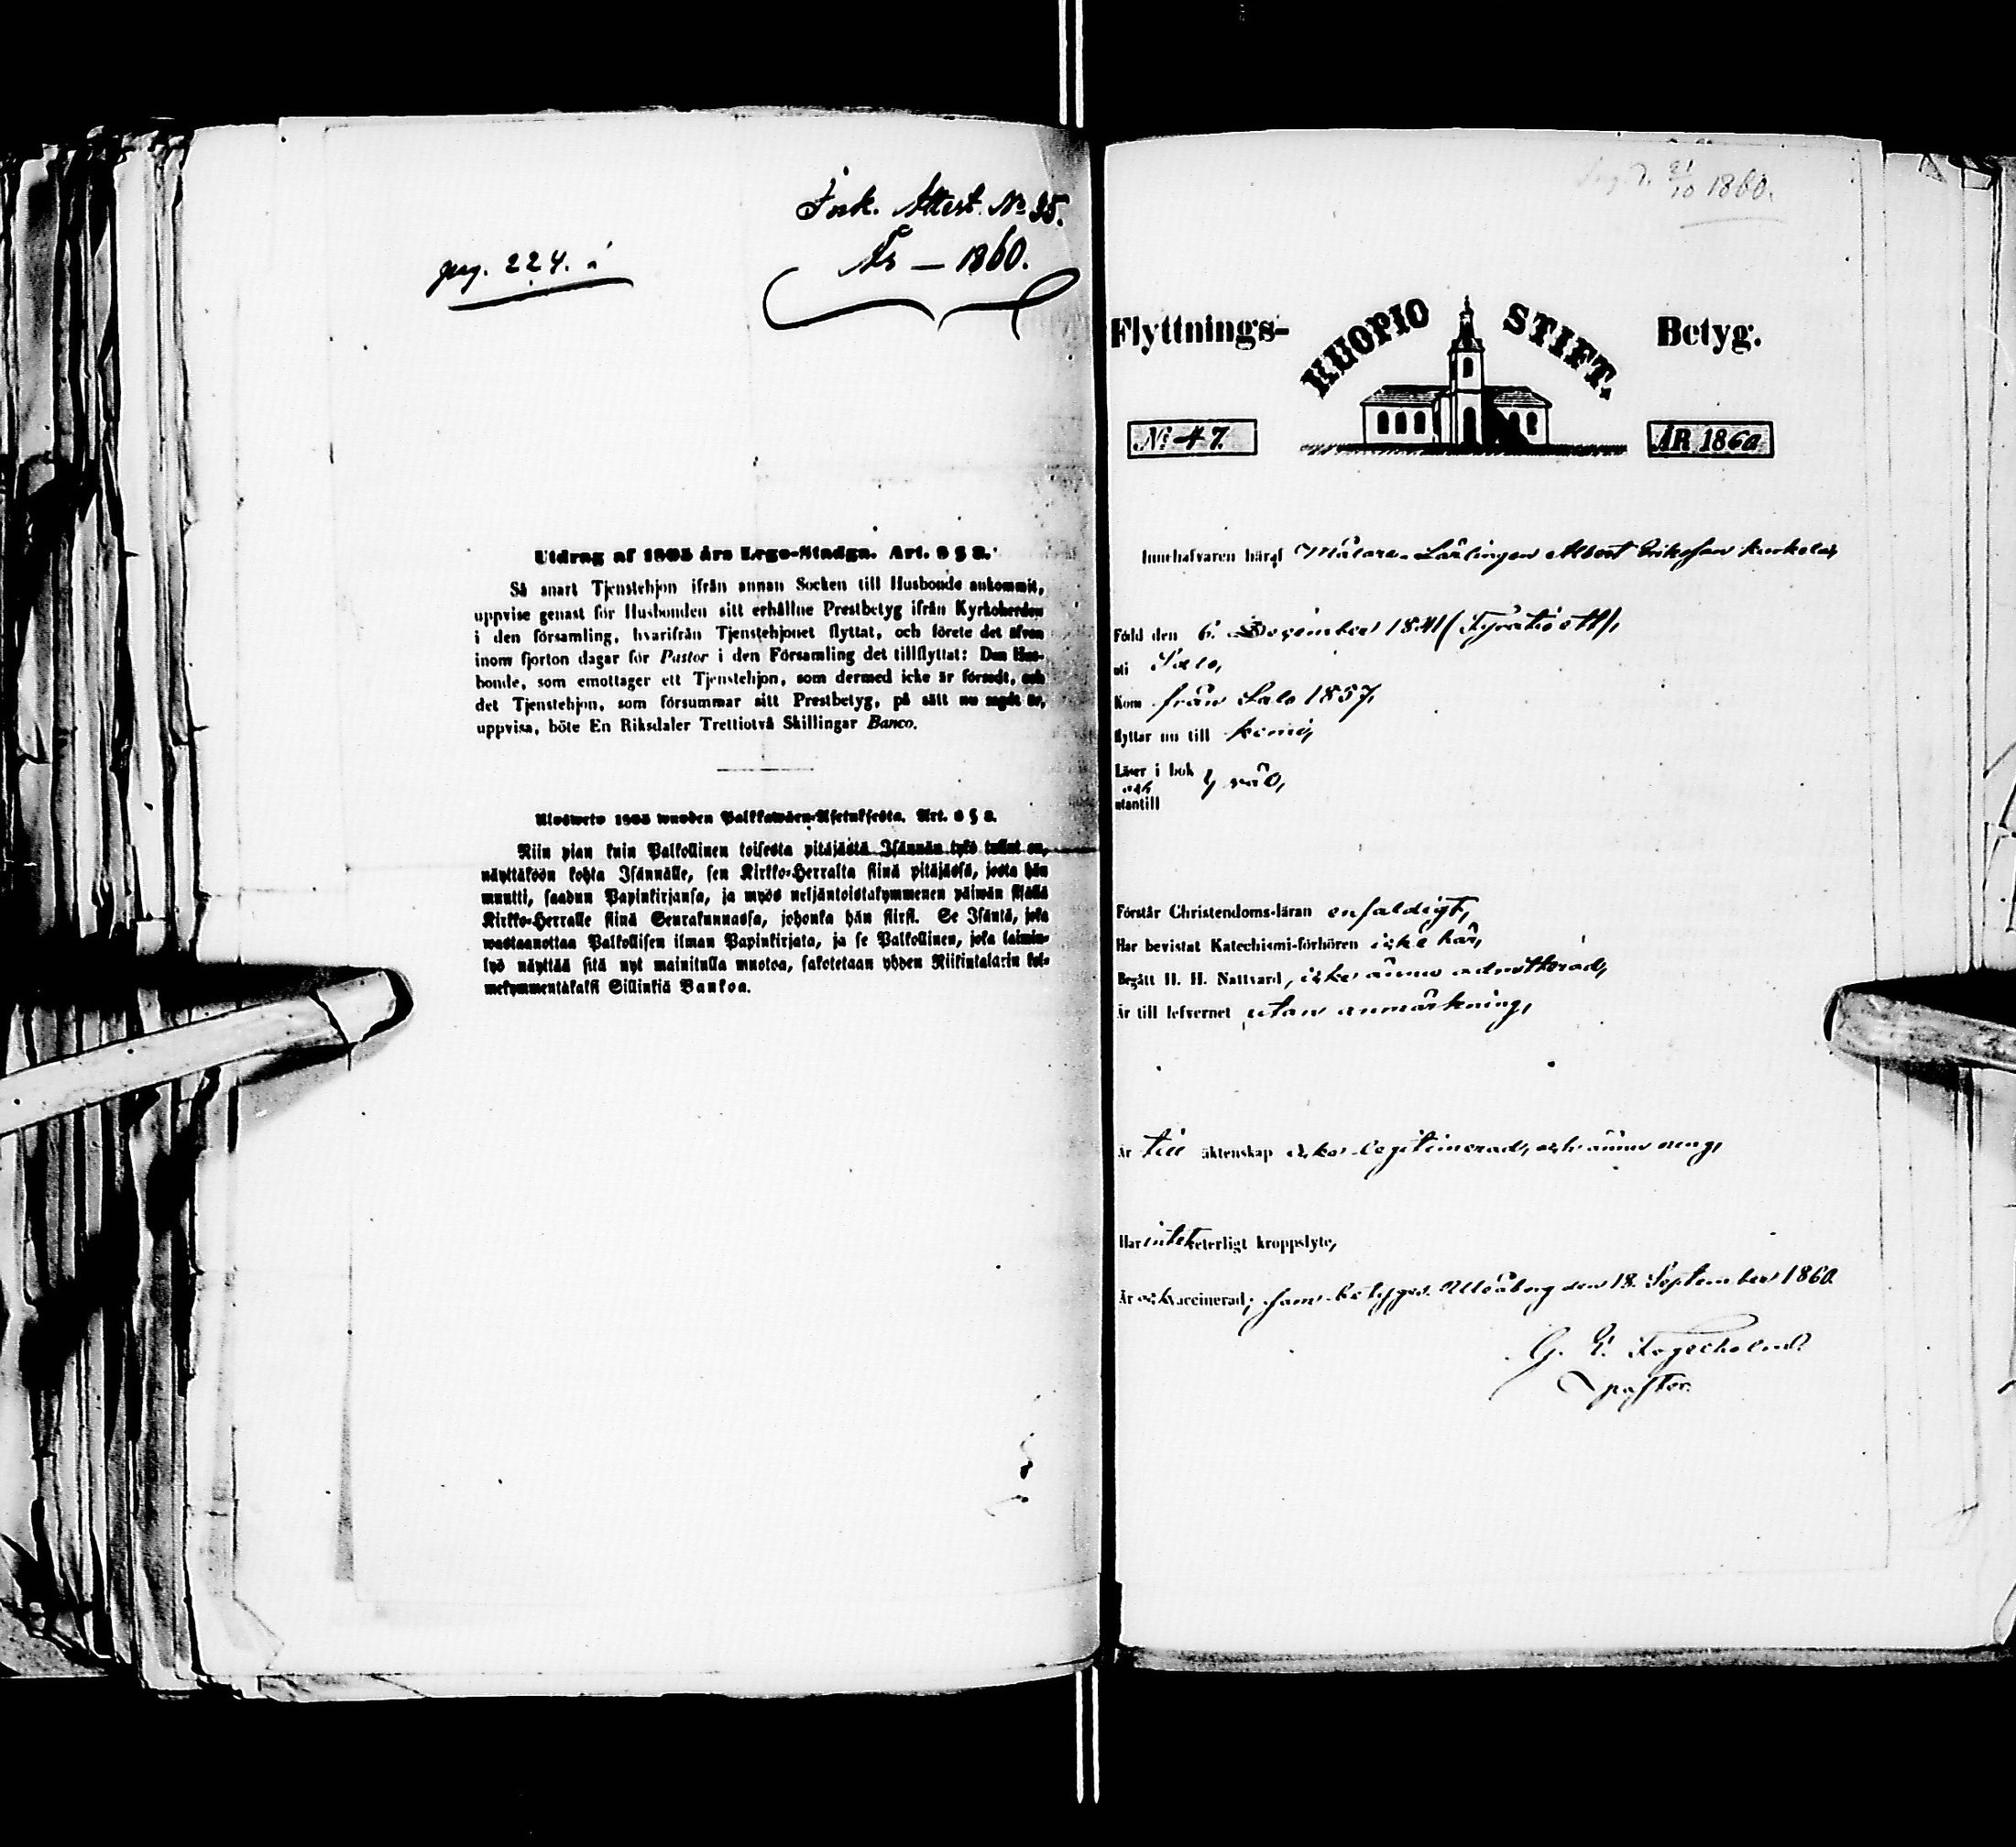 Ink. Attest. No 35.
År — 1860.
pag. 224.
Utdrag af 1805 års Lego-Stadga. Art. 8 § 8.
Så snart Tjenstehjon ifrån annan Socken till Husbonde ankommit,
uppvise genast för Husbonden sitt erhållne Prestbetyg ifrån Kyrkoherden
i den församling, hvarifrån Tjenstehjonet flyttat, och förete det äfven
inom fjorton dagar för Pastor i den Församling det tillflyttat: Den Hus-
bonde, som emottager ett Tjenstehjon, som dermed icke är försedt, och
det Tjenstehjon, som försummar sitt Prestbetyg, på sätt nu sagdt är,
uppvisa, böte En Riksdaler Trettiotvå Skillingar Banco.
Ulosweto 1805 wuoden Palkkawäen-Asetuksesta. Art. 8 § 8.
Niin pian kuin Palkollinen toisesta pitäjästä Isännän tykö tullut on,
näyttäköön kohta Isännälle, sen Kirkko-Herralta siinä pitäjässä, josta hän
muutti, saadun Papinkirjansa, ja myös neljäntoistakymmenen päiwän sisällä
Kirkko-Herralle siinä Seurakunnassa, johonka hän siirsi. Se Isäntä, joka
wastaanottaa Palkollisen ilman Papinkirjata, ja se Palkollinen, joka laimin-
lyö näyttää sitä nyt mainitulla muotoa, sakotetaan yhden Riikintalarin kol-
mekymmentäkaksi Sillinkiä Bankoa.
21/10 1860.
Flyttnings- KUOPIO STIFT. Betyg.
No 47. ÅR 1860
Innehafvaren häraf Målare-Lärlingen Albert Eriksson Kurkela,
Född den 6. December 1841 (Fyratioett),
uti Salo,
Kom från Salo 1857,
flyttar nu till Kemi,
Läser i bok
och } väl,
utantill
Förstår Christendoms-läran enfaldigt,
Har bevistat Katechismi-förhören icke här,
Begått H. H. Nattvard, icke ännu admitterad,
Är till lefvernet utan anmärkning,
Är till äktenskap icke legitimerad, och ännu ung,
Har intet veterligt kroppslyte,
Är och vaccinerad; som betygas. Uleåborg den 18. September 1860.
G. E.